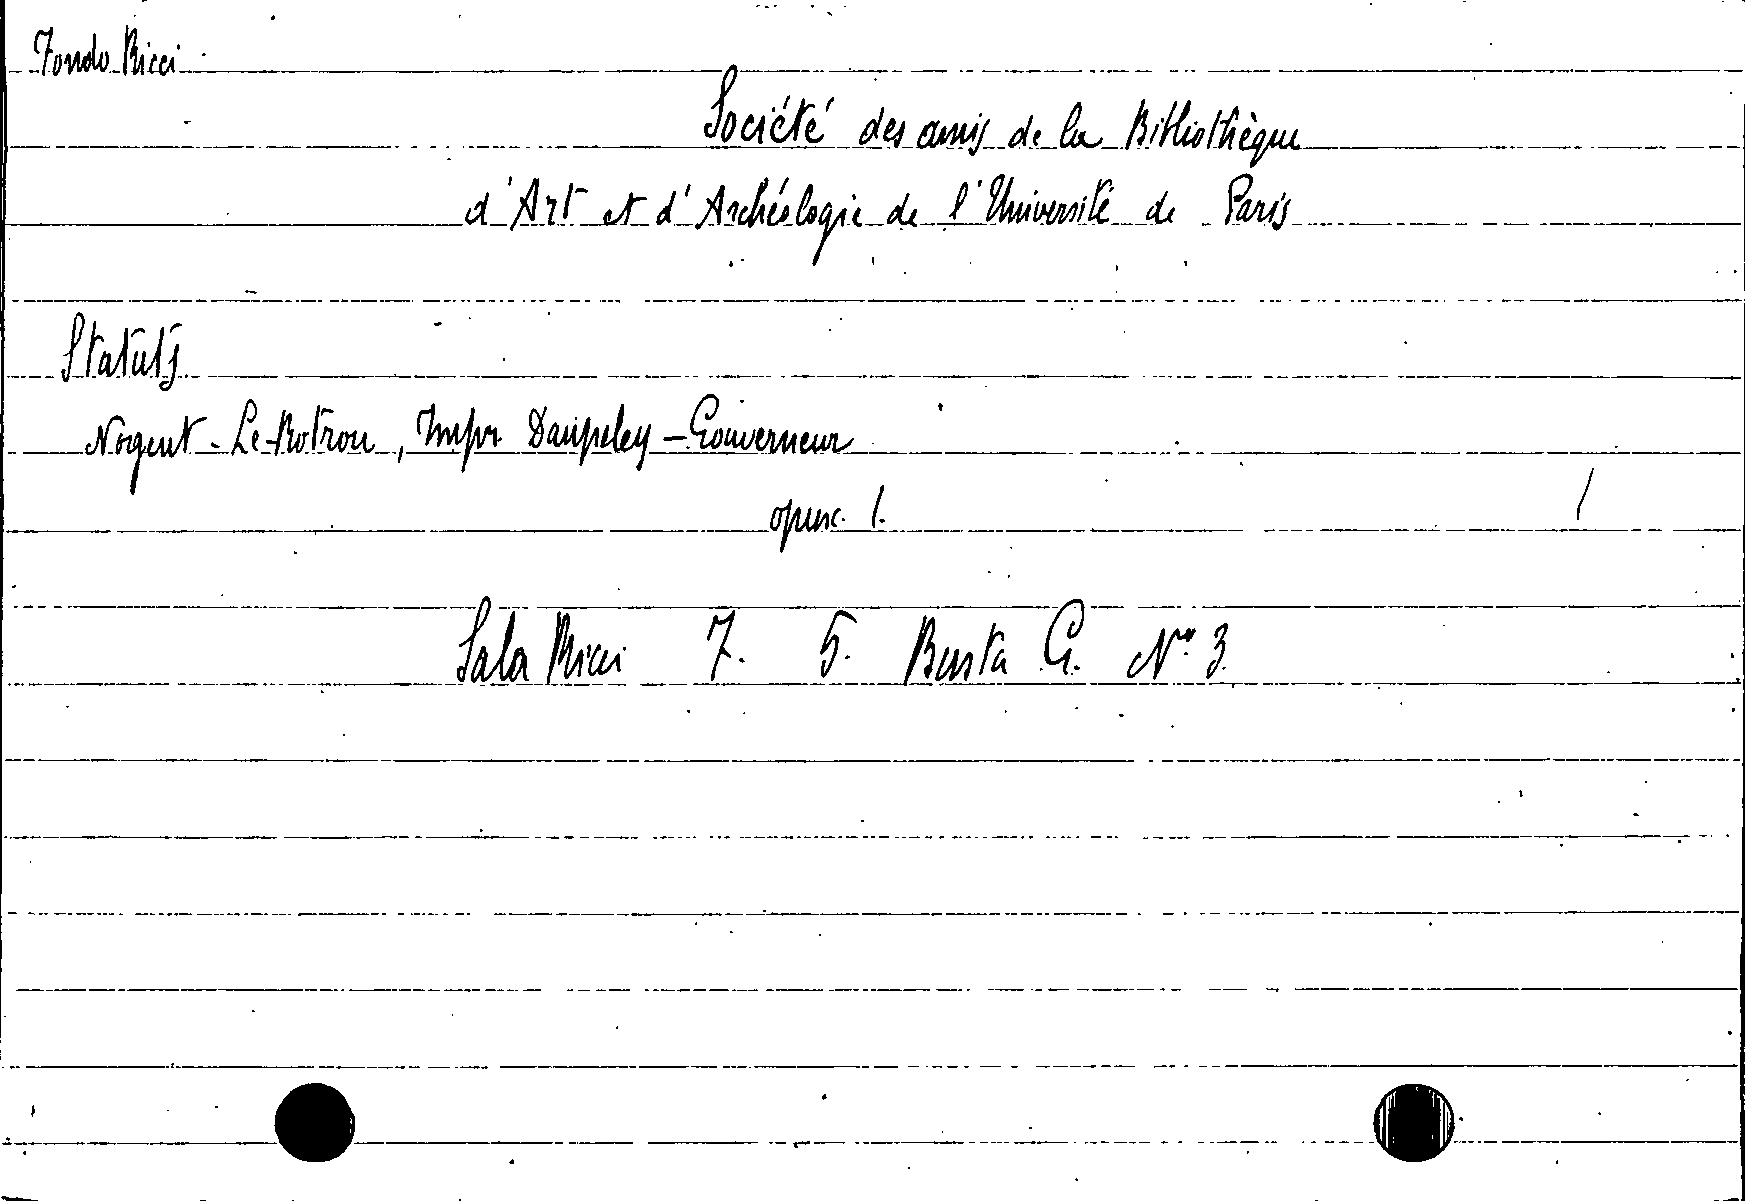 Fondo Ricci
Société des amis de la Bibliothèque
d'Art et d'Archéologie de l'Université de Paris
Statuts
Nogent-Le-Rotrou, Impr Daupeley-Gouverneur
opusc. 1. /
Sala Ricci 7. 5. Busta G. Nº 3